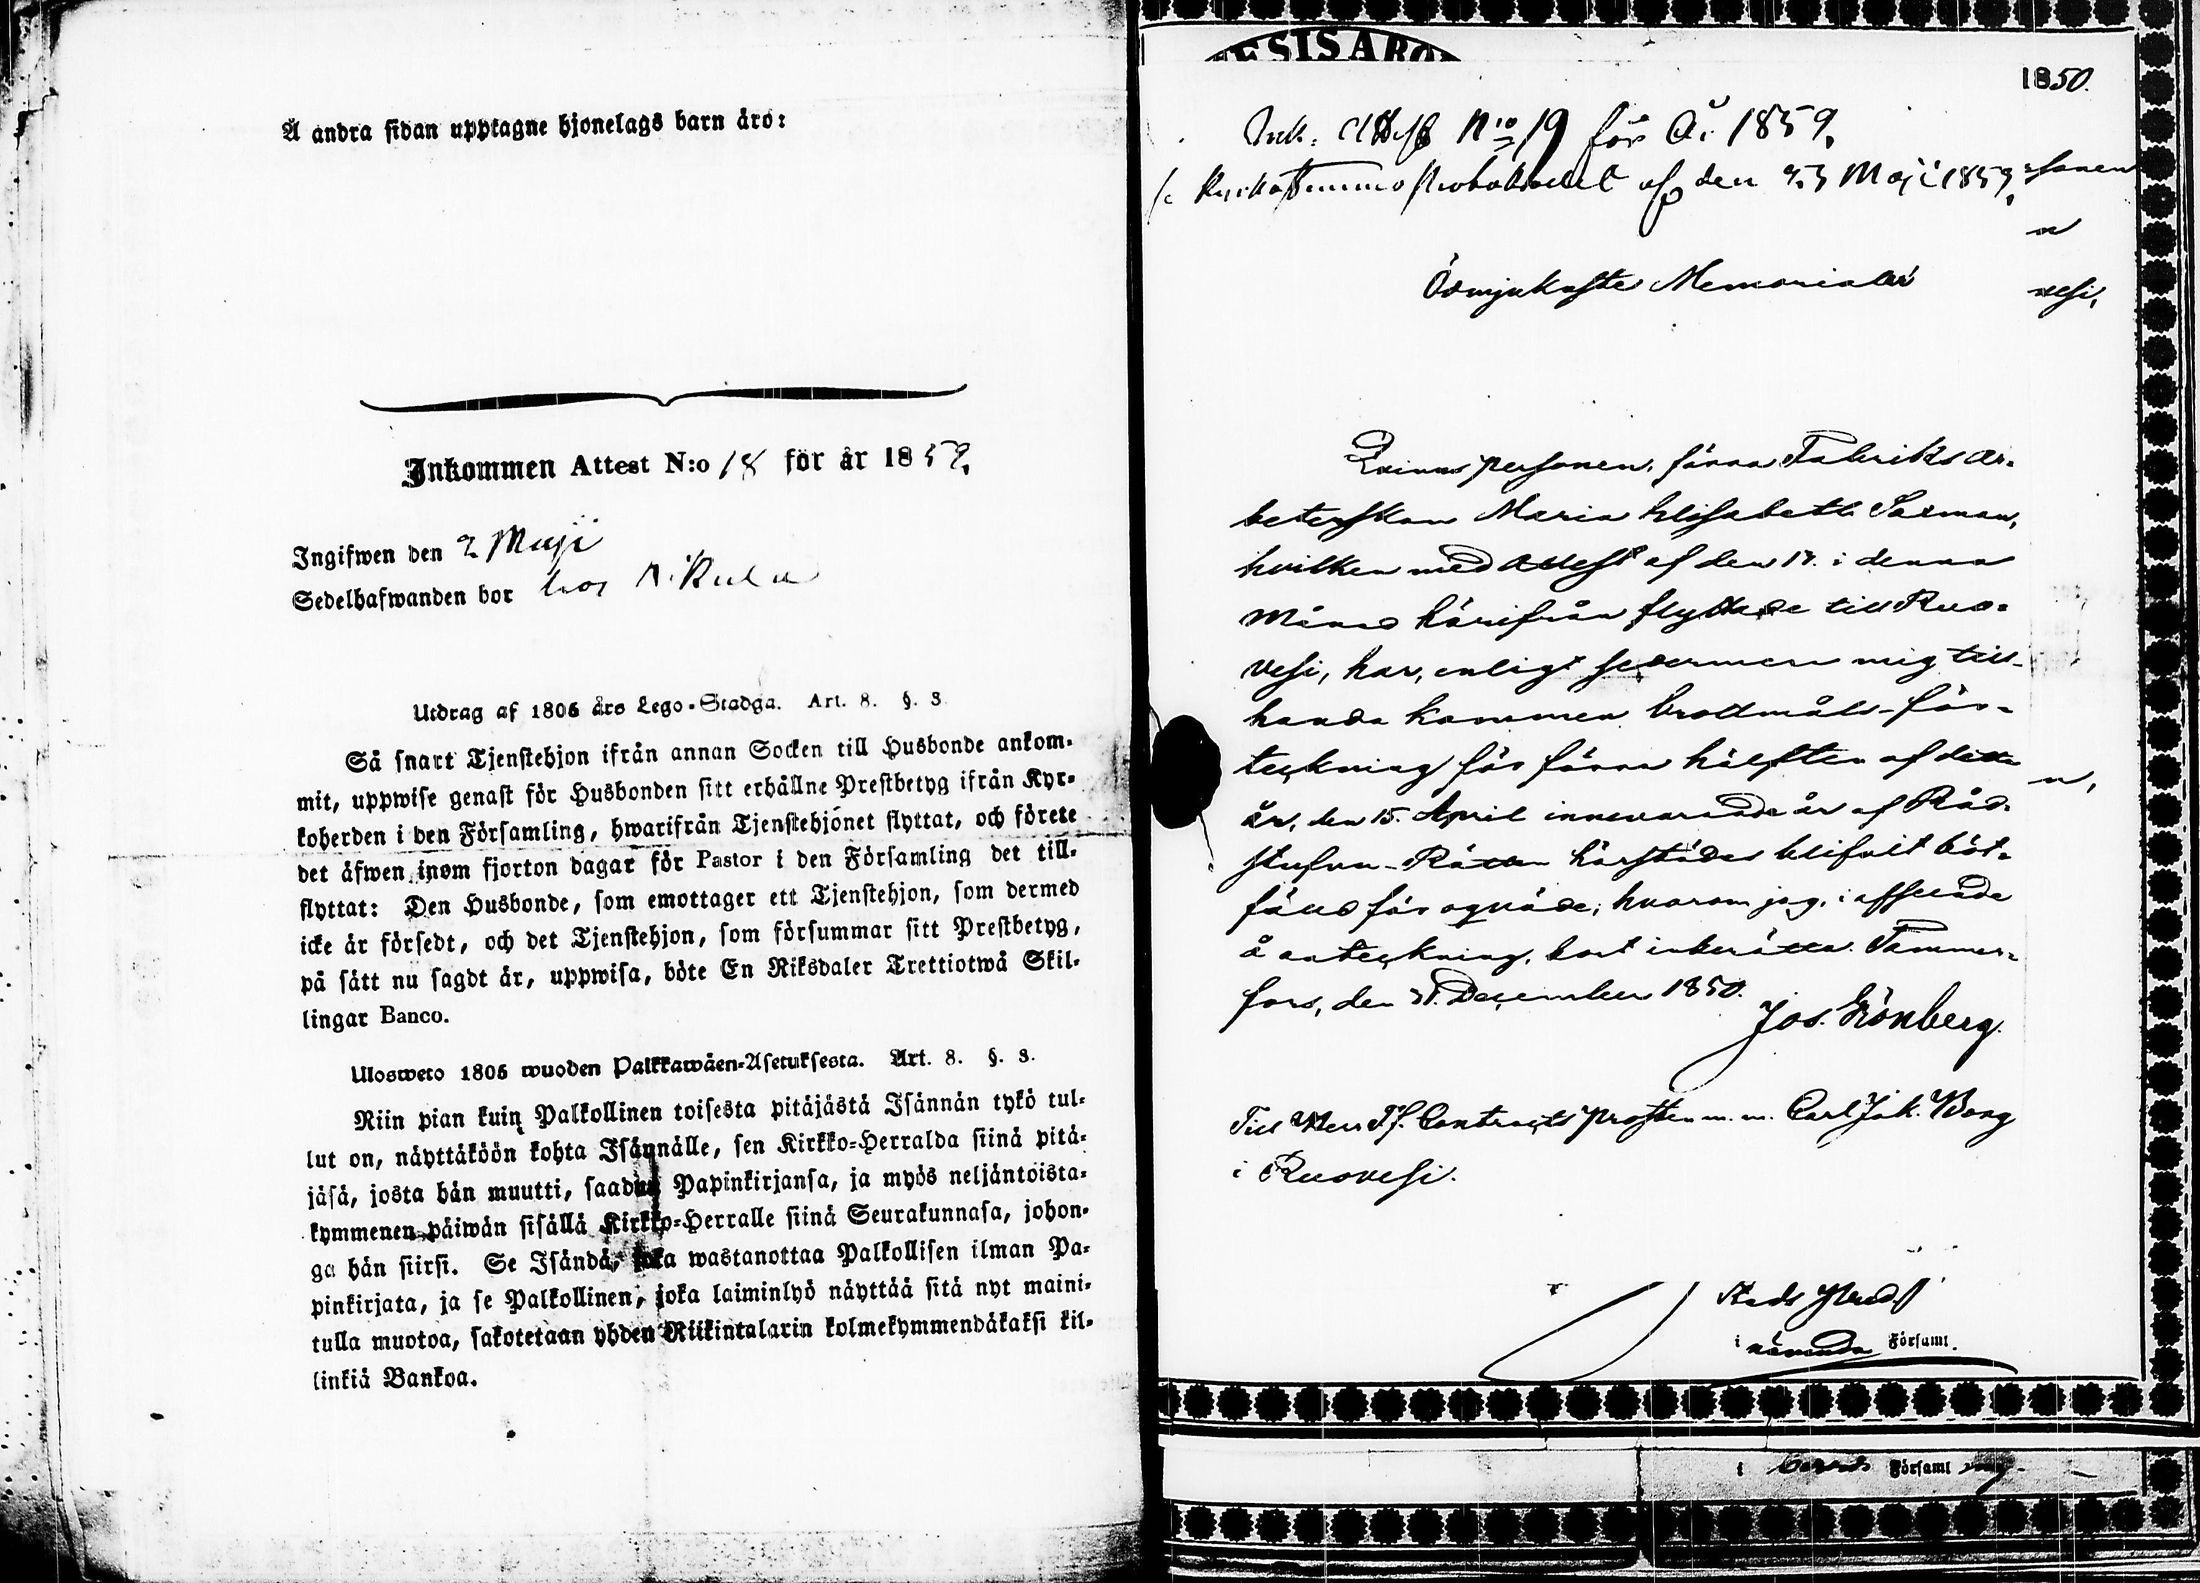 Å andra sidan upptagne hjonelags barn äro:
Inkommen Attest N:o 18 för år 1859.
Ingifwen den 2 Maji
Sedelhafwanden bor hos
Utdrag af 1805 års Lego-Stadga. Art. 8. §. 3.
Så snart Tjenstehjon ifrån annan Socken till Husbonde ankom-
mit, uppwise genast för Husbonden sitt erhållne Prestbetyg ifrån Kyr-
koherden i den Församling, hwarifrån Tjenstehjonet flyttat, och förete
det äfwen inom fjorton dagar för Pastor i den Församling det till-
flyttat: Den Husbonde, som emottager ett Tjenstehjon, som dermed
icke är försedt, och det Tjenstehjon, som försummar sitt Prestbetyg,
på sätt nu sagdt är, uppwisa, böte En Riksdaler Trettiotwå Skil-
lingar Banco.
Ulosweto 1805 wuoden Palkkawäen-Asetuksesta. Art. 8. §. 3.
Niin pian kuin Palkollinen toisesta pitäjästä Isännän tykö tul-
lut on, näyttäköön kohta Isännälle, sen Kirkko-Herralda siinä pitä-
jäsä, josta hän muutti, saadun Papinkirjansa, ja myös neljäntoista-
kymmenen päiwän sisällä Kirkko-Herralle siinä Seurakunnasa, johon-
ga hän siirsi. Se Isändä, joka wastanottaa Palkollisen ilman Pa-
pinkirjata, ja se Palkollinen, joka laiminlyö näyttää sitä nyt maini-
tulla muotoa, sakotetaan yhden Riikintalarin kolmekymmendäkaksi kil-
linkiä Bankoa.
ESIS ABO
1850.
Ink. Attest N:o 19 för År 1859.
af den 23 Maji 1859. sonen
n
Ödmjukaste Memorial
vesi,
Qvinnspersonen, förra Fabriks ar-
beterskan Maria Elisabeth Saxman,
hvilken med attest af den 17. i denna
Månad härifrån flyttade till Ruo-
vesi, har, enligt sedermera mig till-
handa kommen brottmåls-för-
teckning för förra hälften af detta
n,
år, den 15. April innevarande år af Råd-
stufvu-Rätten härstädes blifvit böt-
fäld för oqväde; hvarom jag, i afseende
å anteckning, bort inberätta. Tammer-
fors, den 31. December 1850.
Jos. Grönberg.
Till Herr Tf. Contracts prosten m. m. Carl Jak. Borg
i Ruovesi.
i nämnda Församl.
i Församl